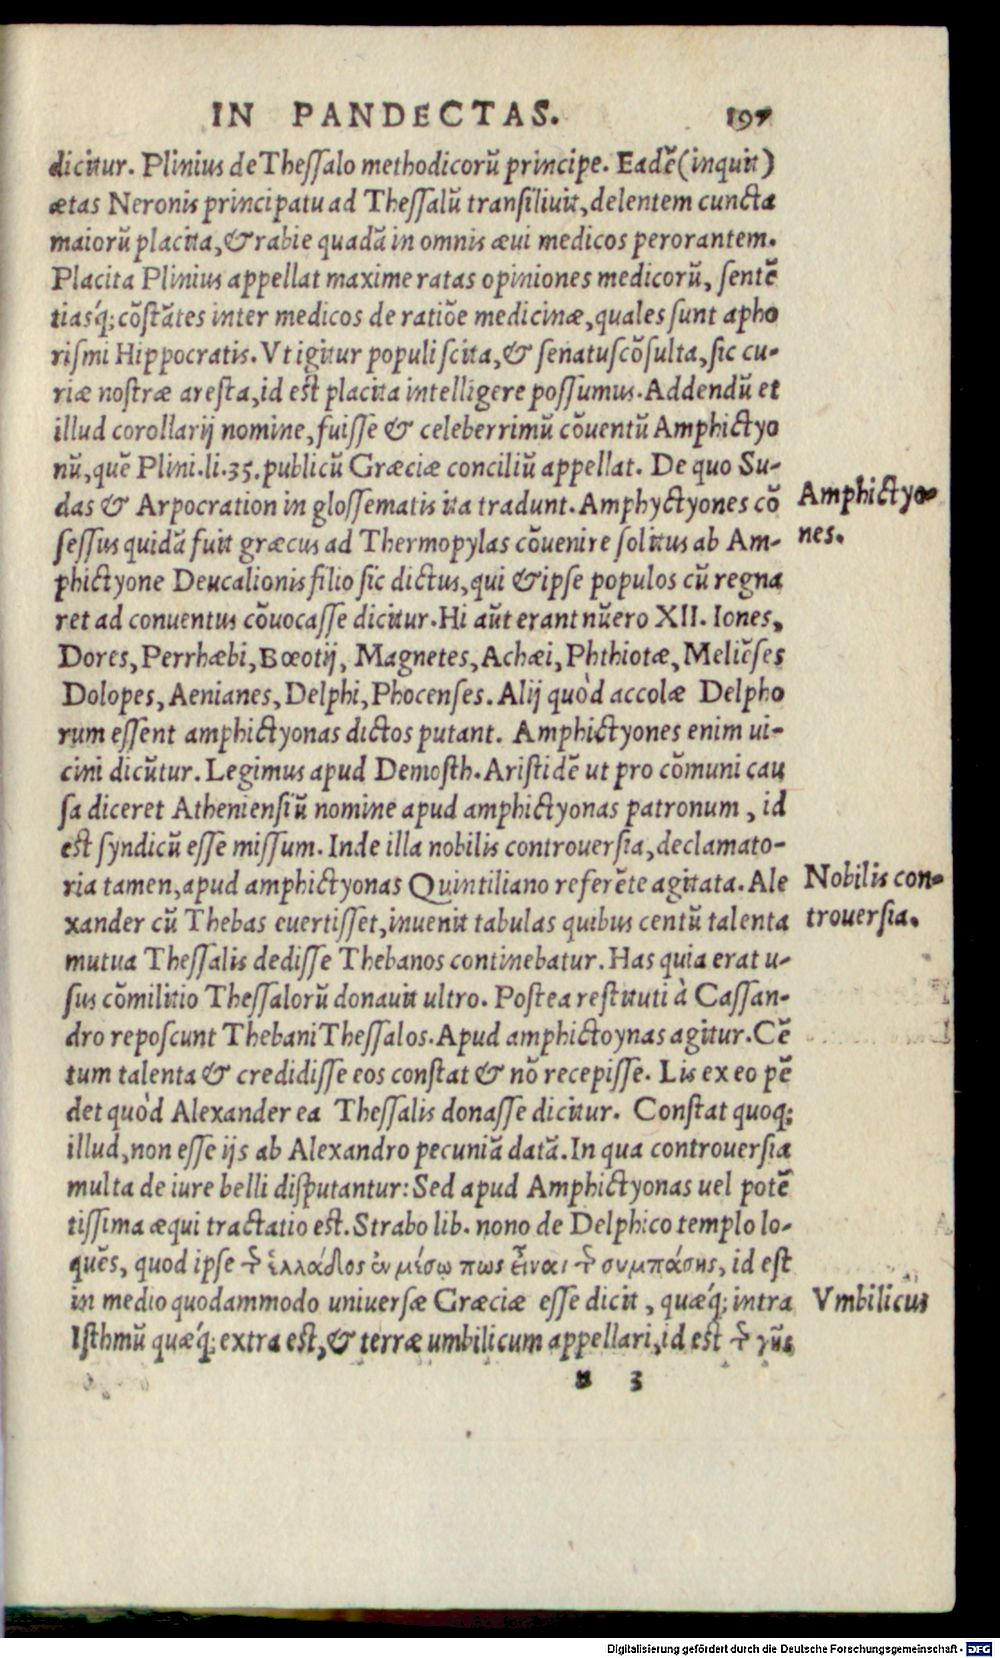 IN PANDECTAS. 197
dicitur. Plinius de Thessalo methodicorũ principe. Eadẽ (inquit)
ætas Neronis principatu ad Thessalũ transiliuit, delentem cuncta
maiorũ placita, & rabie quadã in omnis æui medicos perorantem.
Placita Plinius appellat maxime ratas opiniones medicorũ, sentẽ
tiasq́; cõstãtes inter medicos de ratiõe medicinæ, quales sunt apho
rismi Hippocratis. Vt igitur populi scita, & senatuscõsulta, sic cu-
riæ nostræ aresta, id est placita intelligere possumus. Addendũ et
illud corollarij nomine, fuisse & celeberrimũ cõuentũ Amphictyo
nũ, quẽ Plini. li. 35. publicũ Græciæ conciliũ appellat. De quo Su-
das & Arpocration in glossematis ita tradunt. Amphyctyones cõ
sessus quidã fuit græcus ad Thermopylas cõuenire solitus ab Am-
phictyone Deucalionis filio sic dictus, qui & ipse populos cũ regna
ret ad conuentus cõuocasse dicitur. Hi aũt erant nũero XII. Iones,
Dores, Perrhæbi, Bœotij, Magnetes, Achæi, Phthiotæ, Meliẽses
Dolopes, Aenianes, Delphi, Phocenses. Alij quòd accolæ Delpho
rum essent amphictyonas dictos putant. Amphictyones enim ui-
cini dicũtur. Legimus apud Demosth. Aristidẽ ut pro cõmuni cau
sa diceret Atheniensiũ nomine apud amphictyonas patronum, id
est syndicũ esse missum. Inde illa nobilis controuersia, declamato-
ria tamen, apud amphictyonas Quintiliano referẽte agitata. Ale
xander cũ Thebas euertisset, inuenit tabulas quibus centũ talenta
mutua Thessalis dedisse Thebanos continebatur. Has quia erat u-
sus cõmilitio Thessalorũ donauit ultro. Postea restituti à Cassan-
dro reposcunt Thebani Thessalos. Apud amphictoynas agitur. Cẽ
tum talenta & credidisse eos constat & nõ recepisse. Lis ex eo pẽ
det quòd Alexander ea Thessalis donasse dicitur. Constat quoq;
illud, non esse ijs ab Alexandro pecuniã datã. In qua controuersia
multa de iure belli disputantur: Sed apud Amphictyonas uel potẽ
tissima æqui tractatio est. Strabo lib. nono de Delphico templo lo-
quẽs, quod ipse τ῀ ἑλλάδος ἐν μέσῳ πως εἶναι τ῀ συμπάσης, id est
in medio quodammodo uniuersæ Græciæ esse dicit, quæq́; intra
Isthmũ quæq́; extra est, & terræ umbilicum appellari, id est τ῀ γῆς
n 3
Amphictyo-
nes.
Nobilis con-
trouersia.
Vmbilicus
Digitalisierung gefördert durch die Deutsche Forschungsgemeinschaft - DFG